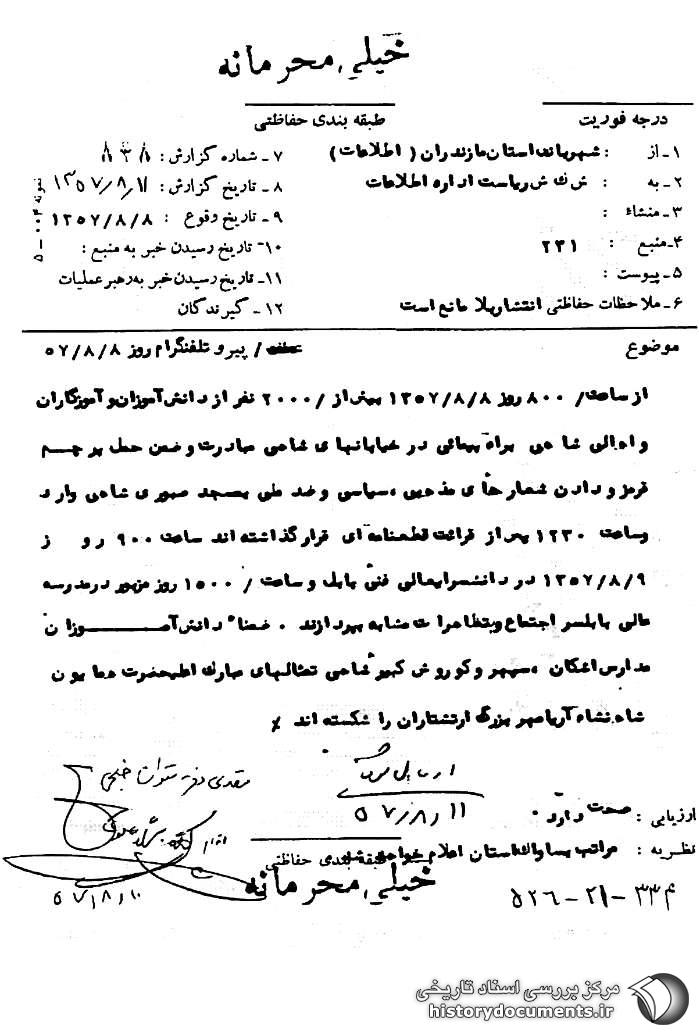 خیلی محرمانه
درجه فوریت طبقه بندی حفاظتی
۱ـ از : شهربانی استان مازندران ( اطلاعات ) ۷ـ شماره گزارش : ۸۳۸
۲ـ به : ش ک ش ریاست اداره اطلاعات ۸ ـ تاریخ گزارش : ۱۳۵۷/۸/۱۱
۳ـ منشاء : ۹ـ تاریخ وقوع : ۱۳۵۷/۸/۸
۴ـ منبع : ۲۴۱ ۱۰ـ تاریخ رسیدن خبر به منبع :
۵ـ پیوست : ۱۱ـ تاریخ رسیدن خبر به رهبر عملیات
۶ـ ملاحظات حفاظتی انتشار بلا مانع است ۱۲ ـ گیرندگان
نمونه ۰۰۴ ـ ۵
موضوع عطف / پیرو تلفنگرام روز ۵۷/۸/۸
از ساعت / ۸۰۰ روز ۱۳۵۷/۸/۸ بیش از / ۲۰۰۰ نفر از دانش آموزان و آموزگاران
و اهالی شاهی براه پیمائی در خیابانهای شاهی مبادرت و ضمن حمل پرچم
قرمز و دادن شعارهای مذهبی ، سیاسی و ضد ملی بمسجد صبوری شاهی وارد
وساعت ۱۲۳۰ پس از قرائت قطعنامه ای قرار گذاشته اند ساعت ۹۰۰ روز
۱۳۵۷/۸/۹ در دانشسرایعالی فنی بابل و ساعت / ۱۵۰۰ روز مزبور در مدرسه
عالی بابلسر اجتماع و بتظاهرات مشابه بپردازند . ضمنا" دانش آموزان
مدارس اشکان ، سپهر و کوروش کبیر شاهی تمثالهای مبارک اعلیحضرت همایون
شاهنشاه آریامهر بزرگ ارتشتاران را شکسته اند ٪
۵۷/۸/۱۱
ارزیابی : صحت دارد .
نظریه : مراتب بساواک استان اعلام خواهد شد
طبقه بندی حفاظتی
خیلی محرمانه
۵۷/۸/۱۰
۵۲۶-۲۱-۳۳۴
مرکز بررسی اسناد تاریخی
historydocuments.ir